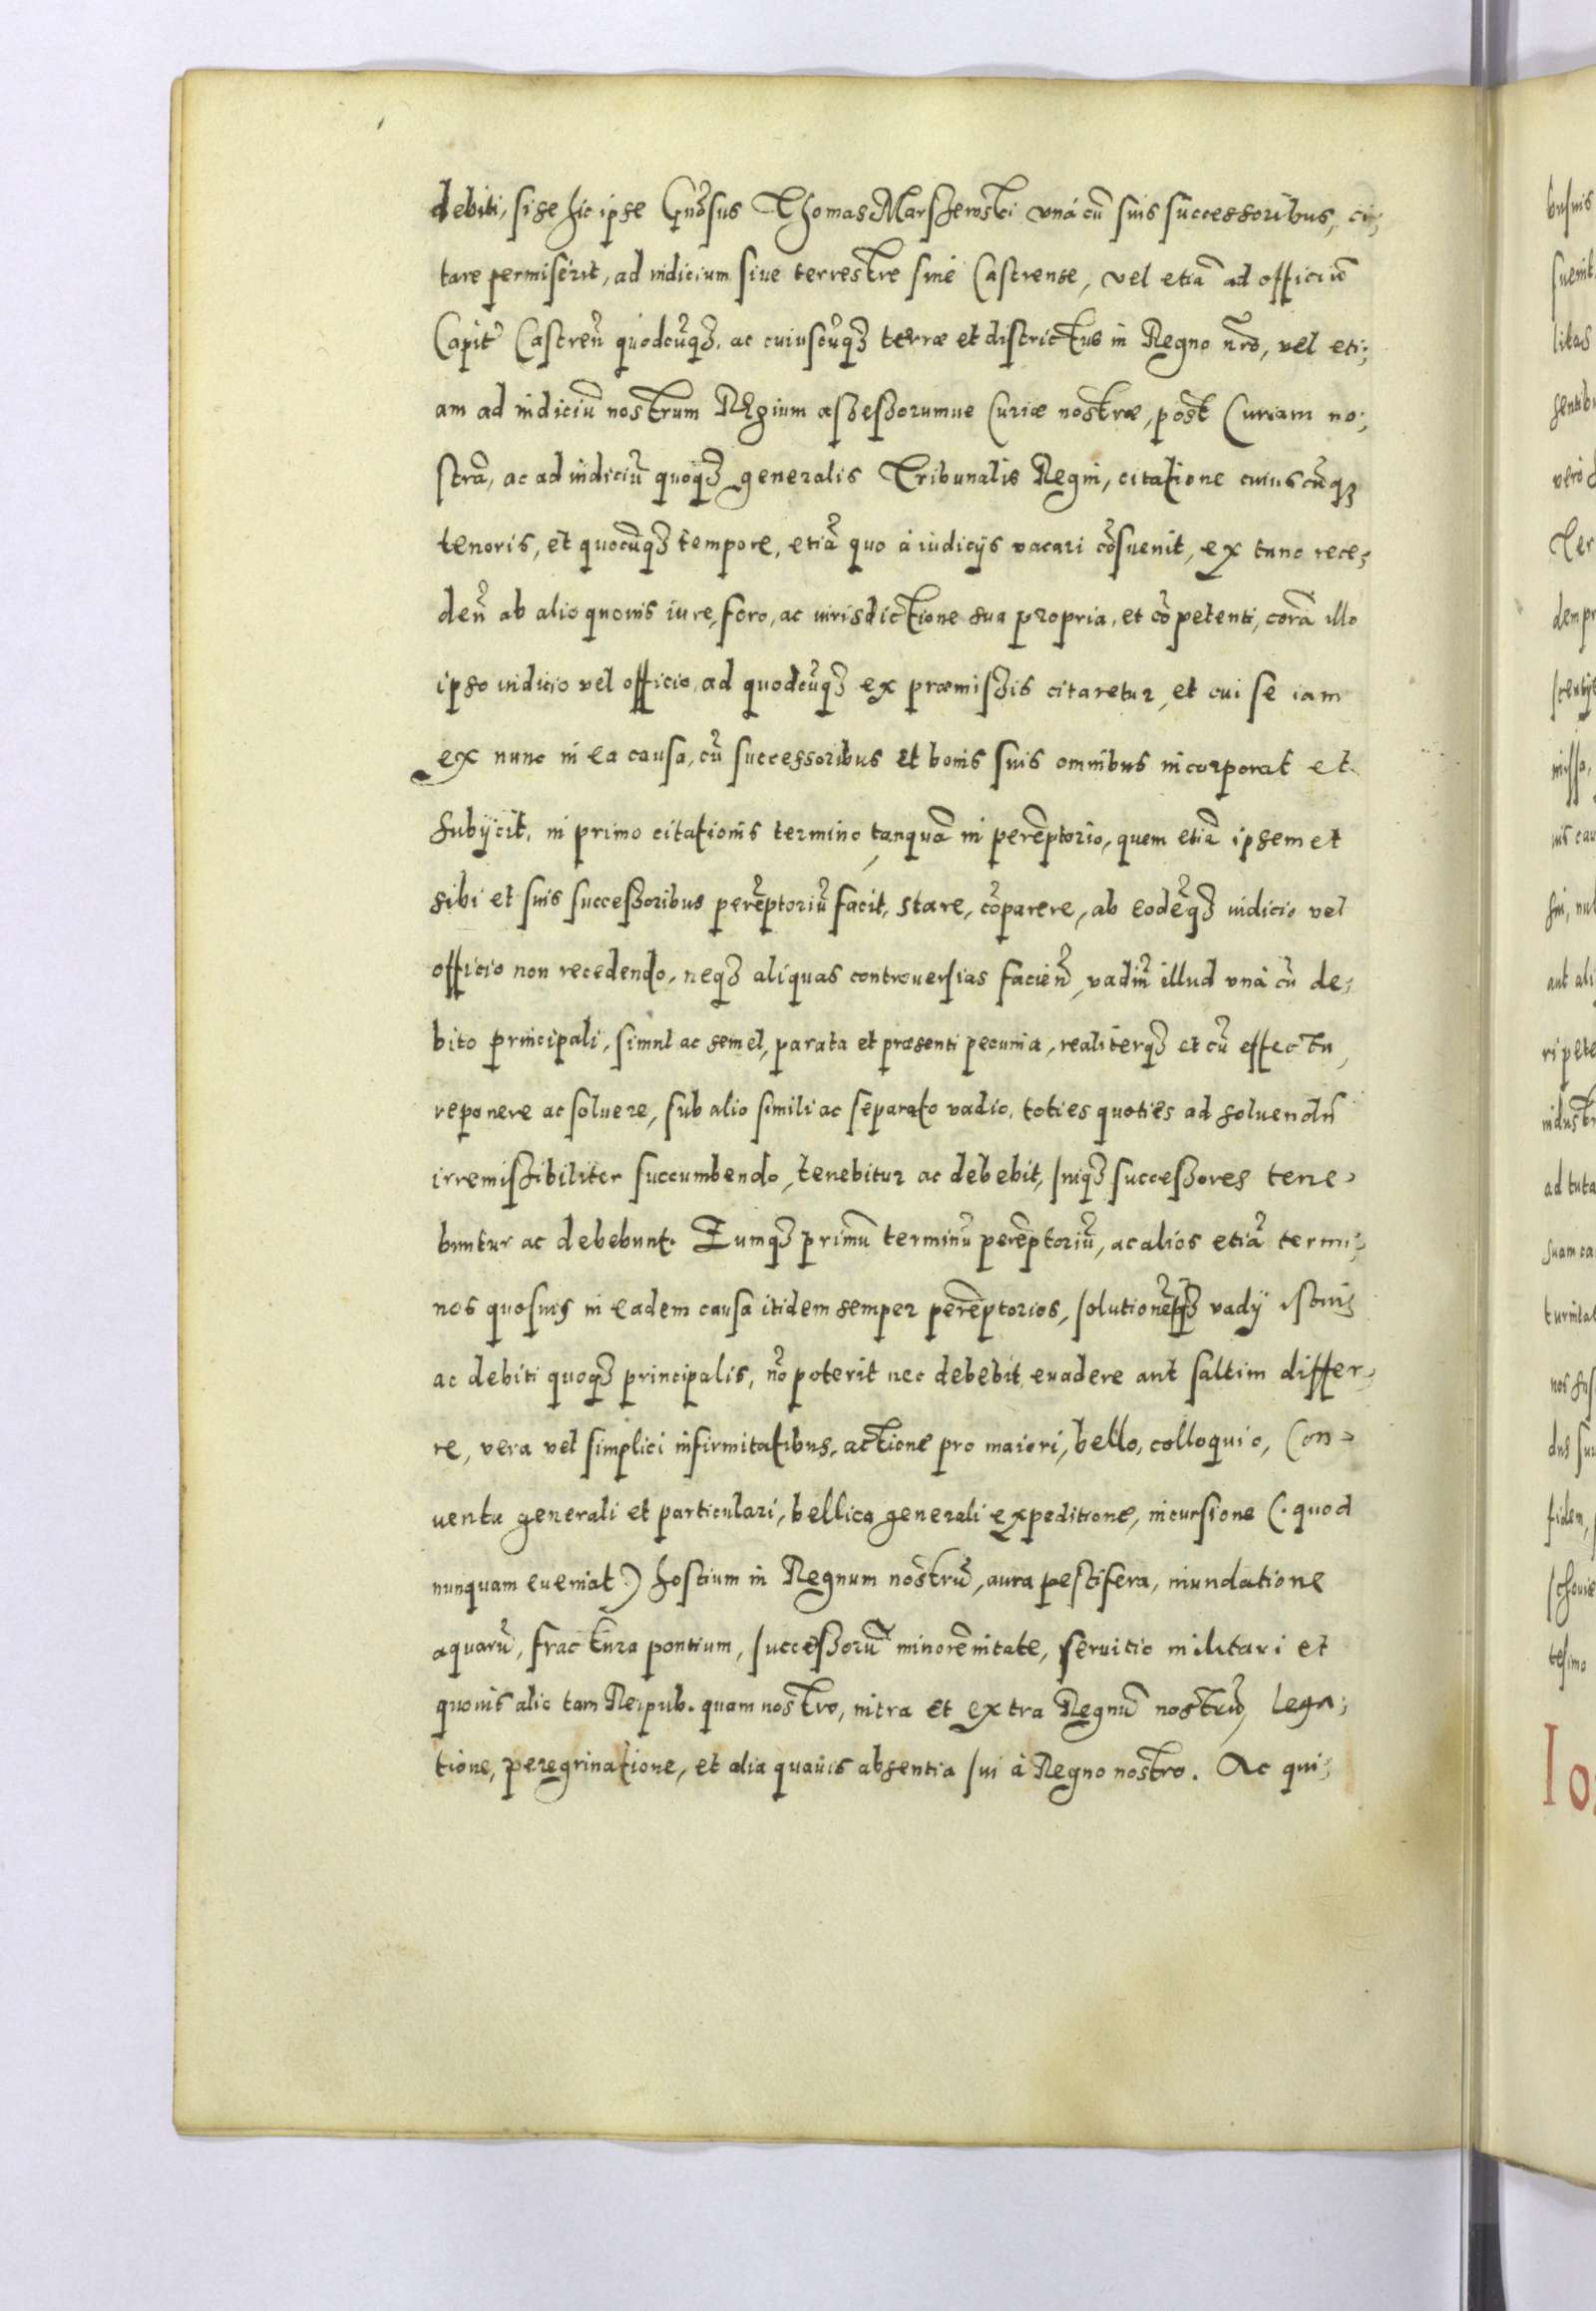 debiti, si se hic ipse Gn̄osus Thomas Marszewski vná cũ suis successoribus, ci;
tare permiserit, ad iudicium siue terrestre siue Castrense, vel etiã ad officiũ
Capit Castreñ quodcũqȝ, ac cuiuscũqȝ terræ et districtus in Regno nr̃o, vel eti;
am ad iudiciũ nostrum REgium assessorumue Curiæ nostræ, post Curiam no;
strã, ac ad iudiciũ quoqȝ generalis Tribunalis Regni, citatione cuiuscũqȝ
tenoris, et quocũqȝ tempore, etiã quo à iudicijs vacari cõsueuit, ex tunc rece;
deñ ab alio quouis iure, foro, ac iurisdictione sua propria, et cõpetenti, corã illo
ipso iudicio vel officio, ad quodcũqȝ ex præmissis citaretur, et cui se iam
ex nunc in ea causa, cũ successoribus et bonis suis omnibus incorporat et
subijcit, in primo citationis termino tanquã in perẽptorio, quem etiã ipsemet
sibi et suis successoribus perẽptoriũ facit, stare, cõparere, ab eodẽqȝ iudicio vel
officio non recedendo, neqȝ aliquas controuersias facieñ, vadiũ illud vná cũ de;
bito principali, simul ac semel, parata et præsenti pecunia, realiterqȝ et cũ effectu,
reponere ac soluere, sub alio simili ac separato vadio, toties quoties ad soluendũ
irremissibiliter succumbendo, tenebitur ac debebit, suiqȝ successores tene-
buntur ac debebunt. Eumqȝ primũ terminũ perẽptoriũ, ac alios etiã termi;
nos quosuis in eadem causa itidem semper perẽptorios, solutionẽqȝ vadij istius
ac debiti quoqȝ principalis, nõ poterit nec debebit, euadere aut saltim differ-
re, vera vel simplici infirmitatibus, actione pro maiori, bello, colloquio, Con-
uentu generali et particulari, bellica generali expeditione, incursione (. quod
nunquam eueniat.) hostium in Regnum nostrũ, aura pestifera, inundatione
aquarũ, fractura pontium, successorũ minorẽnitate, seruitio militari et
quouis alio tam Reipub. quam nostro, intra et extra Regnũ nostrũ, lega;
tione, peregrinatione, et alia quauis absentia sui à Regno nostro. Ac qui;